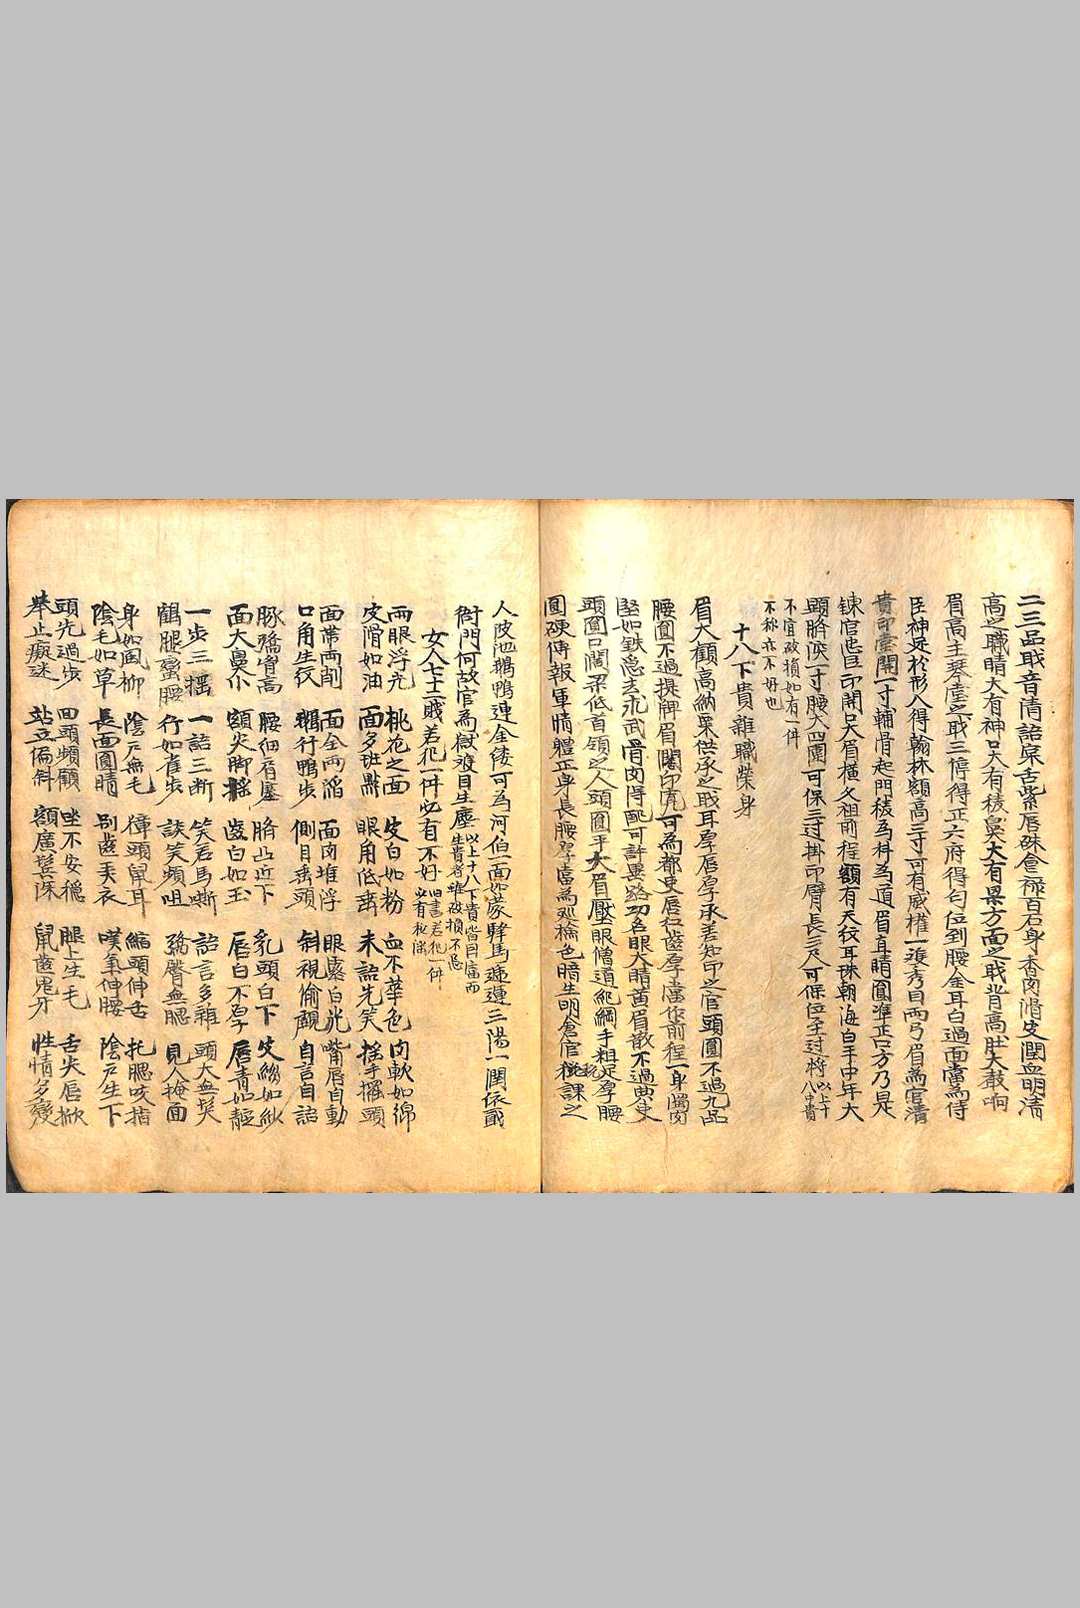 二三品戢音清語原舌紫唇硃食祿百石身香肉滑皮潤血明清
高之職睛大有神口大有稜鼻大有梁方面之戢背高肚大聲响
眉高主琴堂之戢三停得正六府得匀位到腰金耳白過面當為侍
臣神足於形八得翰林額高三寸可有威權一發秀目兩弓眉為官清
貴印堂開一寸輔骨起門稜為科為道眉直睛圓準正口方乃是
諫官山巨印開口大眉橫久祖前程額有天紋耳珠朝海白手中年大
顯臍深一寸腰大四圍可保三过掛印臂長三尺可保位至过將 以上十八中貴
不宜破損如有一件
不称亦不好也
十八下貴雜職榮身
眉大顴高納粟供承之戢耳厚唇厚承差知印之官頭圓不過九品
腰圓不過提牌眉闊印寬可為都吏唇紅齒厚當作前程一身肉
堅如鉄急去求武骨肉得配可許要路功名眼大睛黃眉散不過典吏
頭圓口闊梁低首領之人頭圓手大眉壓眼僧道紀綱手粗足厚腰
圓硬傳報軍情體正身長腰厚當為巡檢色暗生明倉官稅課之
人皮泡鵝鴨連全倭可為河伯一面如蒙驛馬遞運三陽一潤依舊
衙門何故官為獄渡目生塵 以上十八下貴皆因富而
生貴者雖破損不忌
女人七十二賤若犯一件必有不好 旧書若犯一件
必有私
兩眼浮光 桃花之面 皮白如粉 血不華色 肉軟如綿
皮滑如油 面多班點 眼角低垂 未語先笑 搖手擺頭
面帶兩削 面全兩滔 面肉堆浮 眼露白光 嘴唇自動
口角生紋 鵝行鴨步 側目垂頭 斜視偷觀 自言自語
豚蹺胷高 腰細肩塞 臍凸近下 乳頭白下 皮縐如紗
面大鼻小 額尖脚搖 齒白如玉 唇白不厚 唇青如靛
一步三搖 一語三断 笑若馬嘶 語言多雜 頭大無髮
鶴腿蠻腰 行如雀步 談笑頻咀 臀無腮 見人掩面
身如風柳 陰戶無毛 獐頭鼠耳 縮頭伸舌 托腮咬指
陰毛如草 長面圓睛 別齒美衣 嘆氣伸腰 陰戶生下
頭先過步 回頭頻顧 坐不安穩 腿上生毛 舌尖唇掀
举止癡迷 站立偏斜 額廣鬂深 鼠齒鬼牙 性情多變